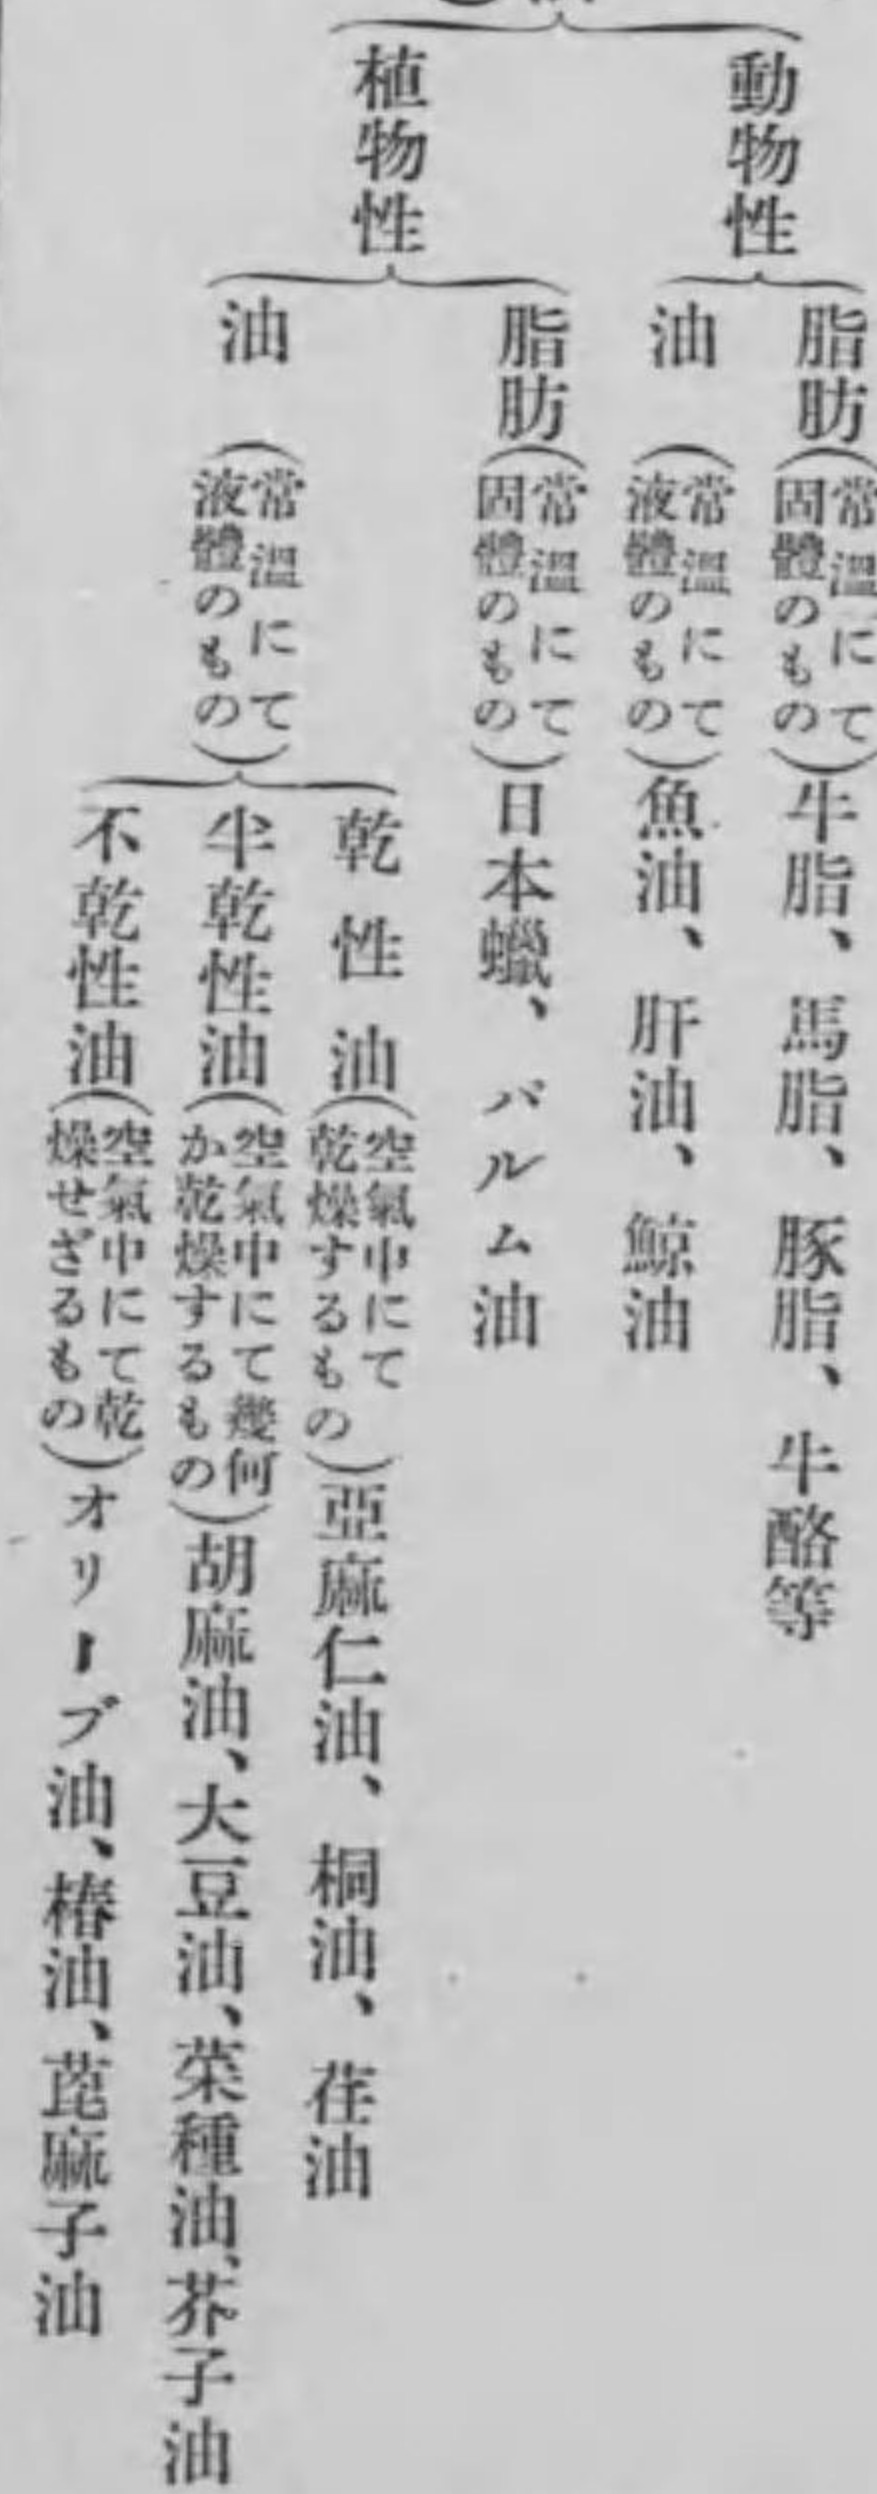 動物性
脂肪(常溫にて固體のもの)牛脂、馬脂、豚脂、牛酪等
油(常溫にて液體のもの)魚油、肝油、鯨油
植物性
脂肪(常溫にて固體のもの)日本蠟、バルム油
油(常溫にて液體のもの)
乾性油(空氣中にて乾燥するもの)亞麻仁油、桐油、荏油
半乾性油(空氣中にて幾何か乾燥するもの)胡麻油、大豆油、菜種油、芥子油
不乾性油(空氣中にて乾燥せざるもの)オリーブ油、椿油、蓖麻子油